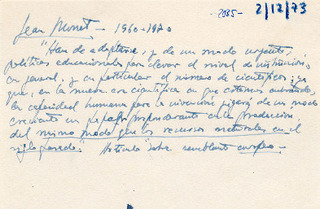 -2085- 2/12/73
Jean Monet - 1960-1970
"Han de adoptarse, y de un modo urgente,
políticas educacionales para elevar el nivel de instrucción,
en general, y en particular el número de científicos; ya
que, en la nueva era científica en que estamos entrando,
la capacidad humana para la invención jugará de un modo
creciente un papel preponderante en la producción
del mismo modo que los recursos naturales en el
siglo pasado". Artículo sobre semblante europeo -